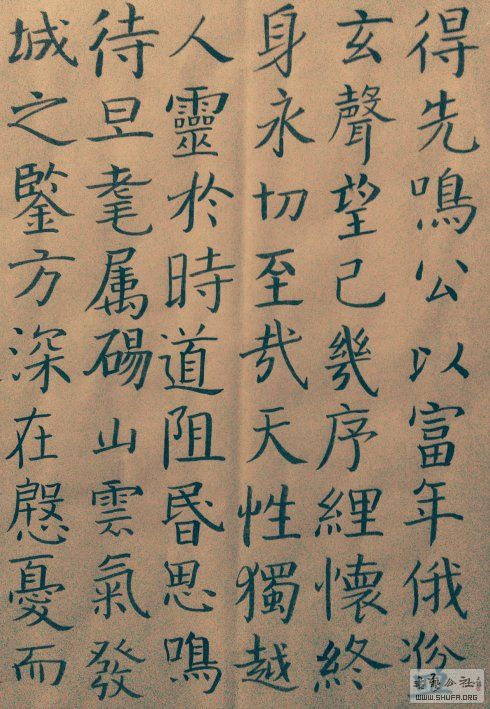 得先鳴公以富年俄
玄聲望己幾序緾懷終
身永切至哉天性獨越
人靈於時道阻昬思鳴
待旦耄属碭山雲氣發
城之鑒方深在慇憂而
書藝公社
WWW.SHUFA.ORG